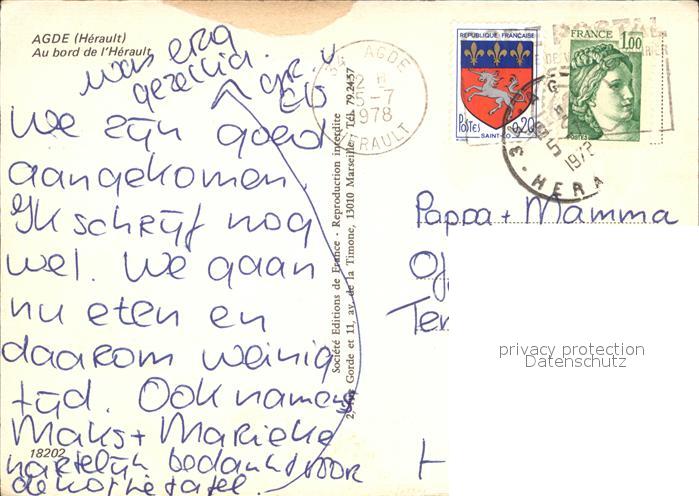 AGDE (Hérault)
Au bord de l'Hérault
was erg
gezellig.
gr. v
Els
We zijn goed
aangekomen.
Ik schrijf nog
wel. We gaan
nu eten en
daarom weinig
tijd. Ook namens
Maks + Marieke
hartelijk bedankt voor
de koffietafel.
18202
Société Editions de France - Reproduction interdite
Gorde et 11, av. de la Timone, 13010 Marseille - Tél. 79.24.57
34 AGDE
12 H
5-7
1978
HERAULT
REPUBLIQUE FRANÇAISE
POSTES 0,20
SAINT-LO
POSTAL
FRANCE
1,00
AGDE
5
1978
HERA
Pappa + Mamma
privacy protection
Datenschutz